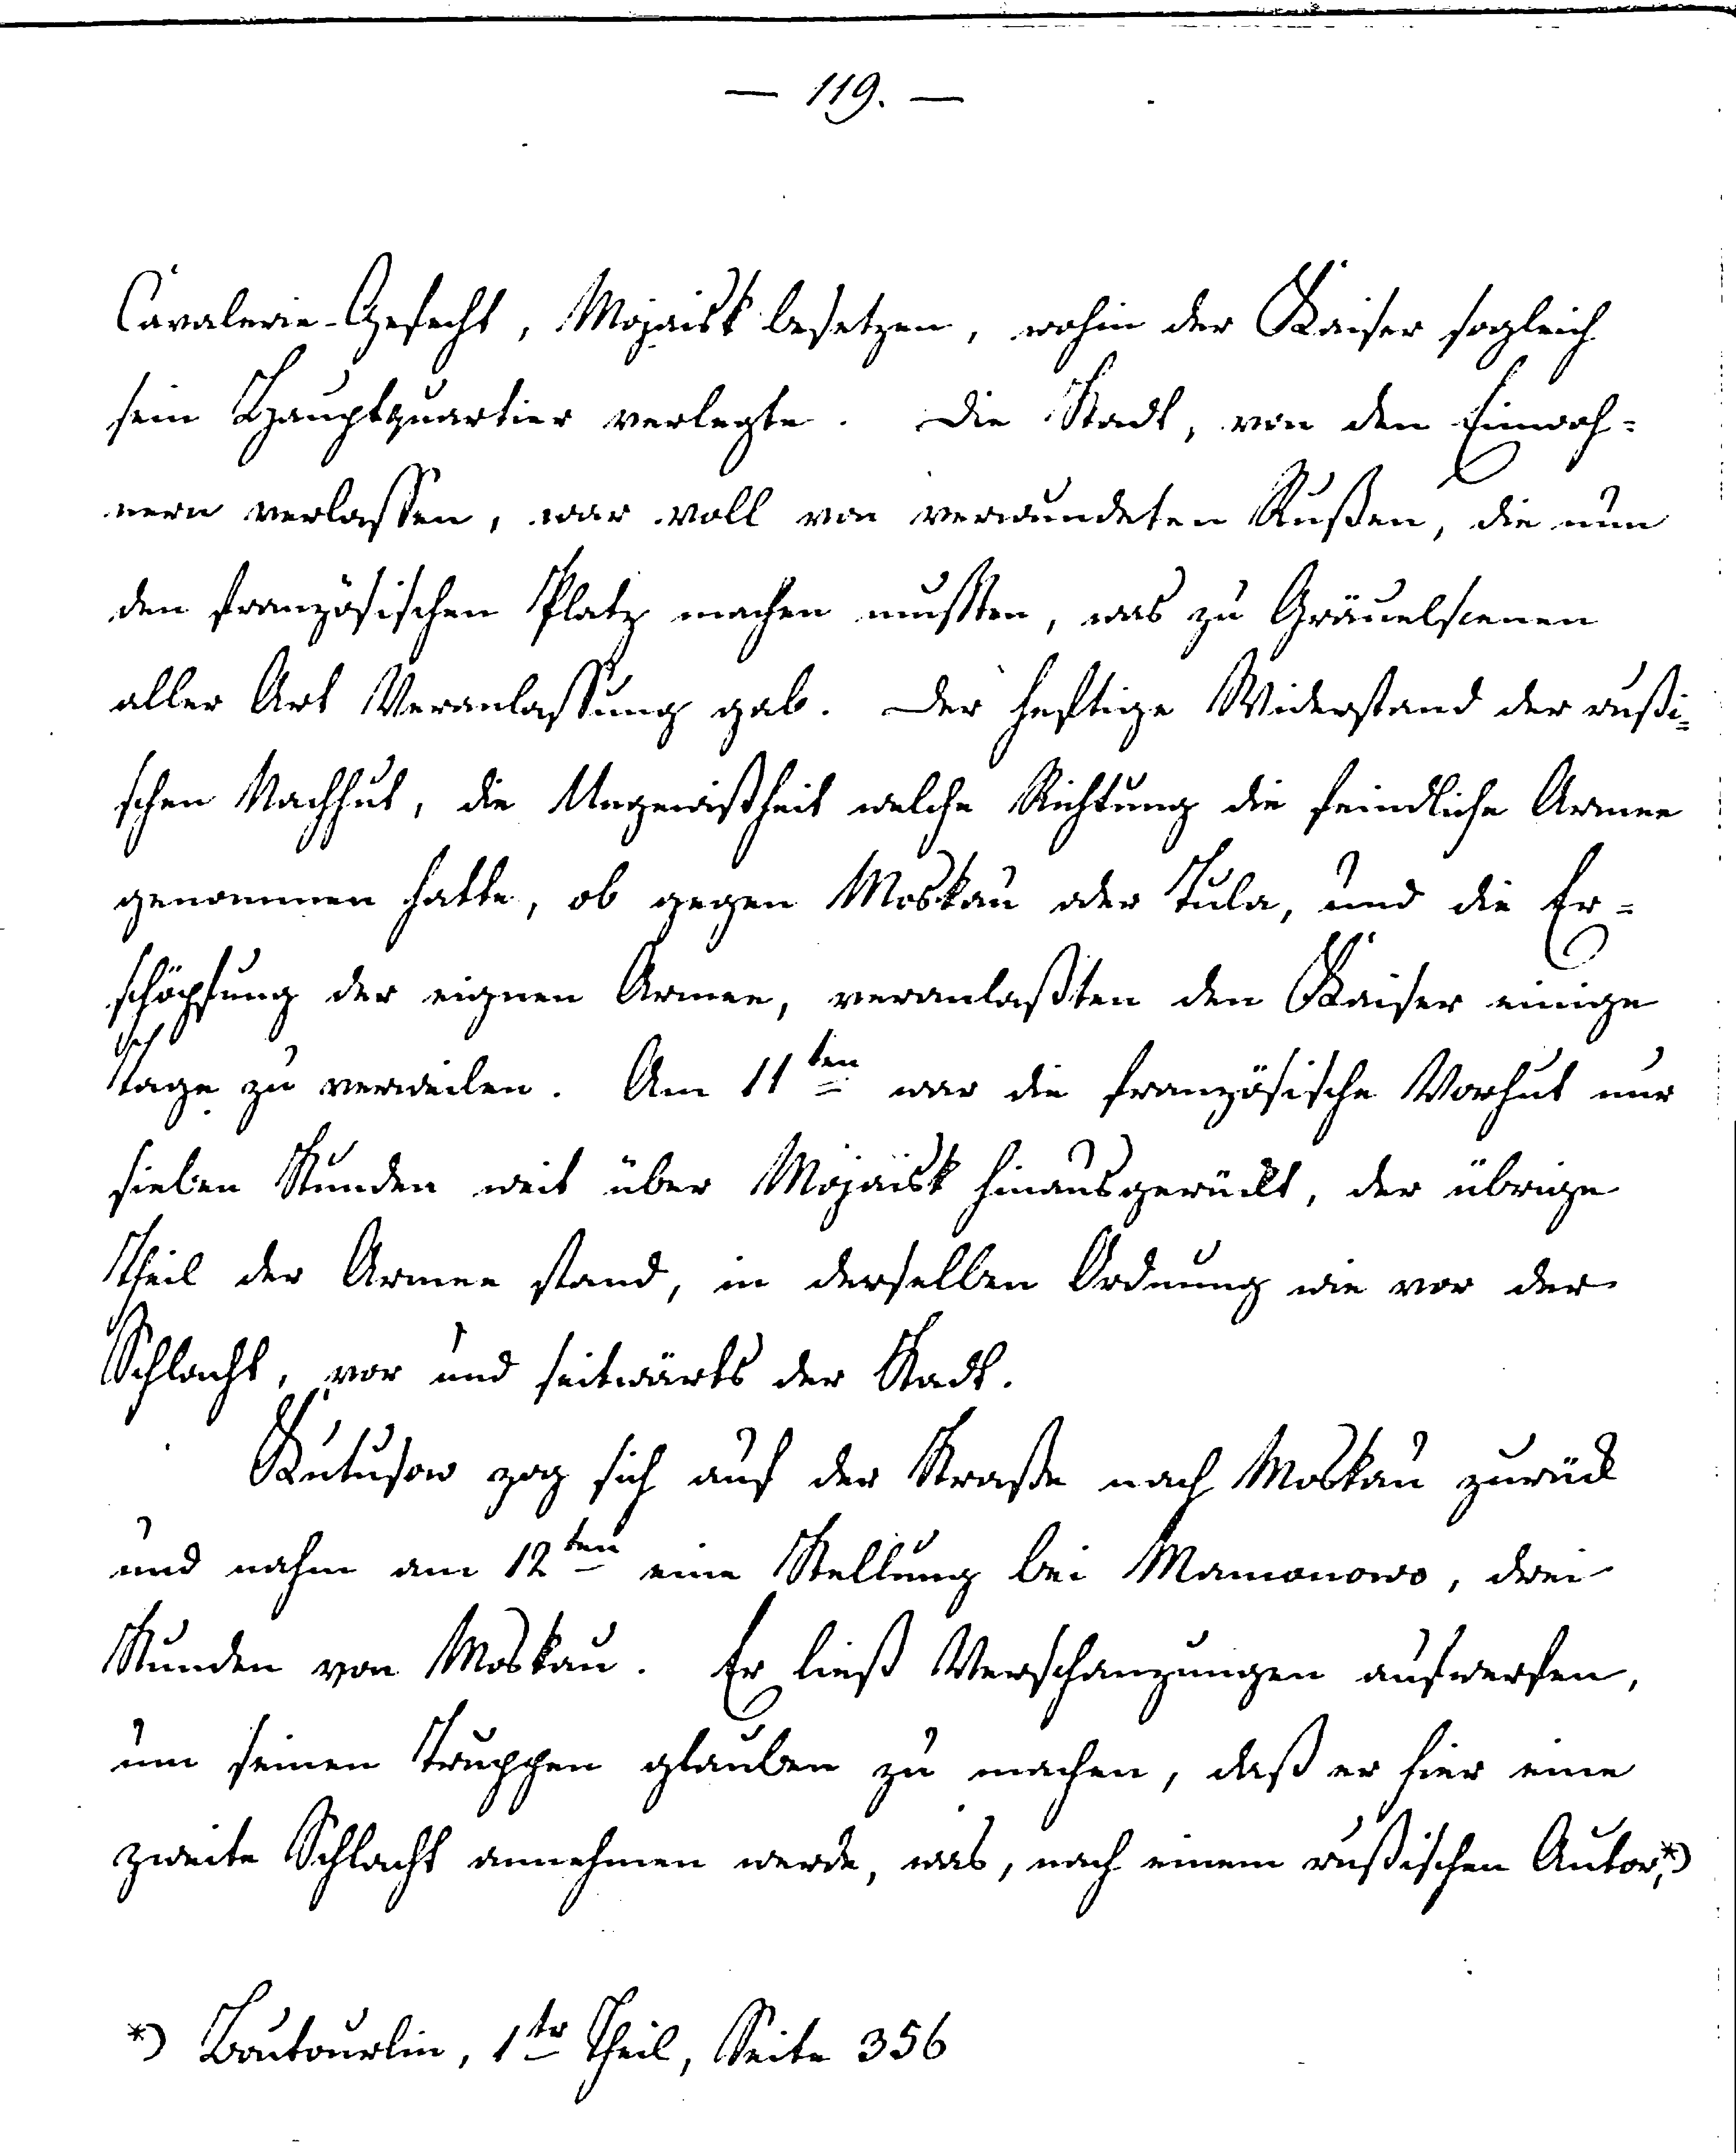 — 119. —
Cavalerie-Gefecht, Mojaisk besetzen, wohin der Kaiser sogleich
sein Hauptquartier verlegte. Die Stadt, von den Einwoh=
nern verlassen, war voll von verwundeten Rußen, die nun
den französischen Platz machen mussten, was zu Gräuelscenen
aller Art Veranlassung gab. Der heftige Widerstand der rußi=
schen Nachhut, die Ungewißheit welche Richtung die feindliche Armee
genommen hatte, ob gegen Moskau oder Tula, und die Er=
schöpfung der eignen Armee, veranlaßten den Kaiser einige
Tage zu verweilen. Am 11ten war die französische Vorhut nur
sieben Stunden weit über Mojaisk hinausgerückt, der übrige
Theil der Armee stand, in derselben Ordnung wie vor der
Schlacht, vor und seitwärts der Stadt.
Kutusow zog sich auf der Straße nach Moskau zurück
und nahm am 12ten eine Stellung bei Mamonowo, drei
Stunden von Moskau. Er ließ Verschanzungen aufwerfen,
um seinen Truppen glauben zu machen, daß er hier eine
zweite Schlacht annehmen werde, was, nach einem rußischen Autor,*)
*) Boutourlin, 1tr Theil, Seite 356